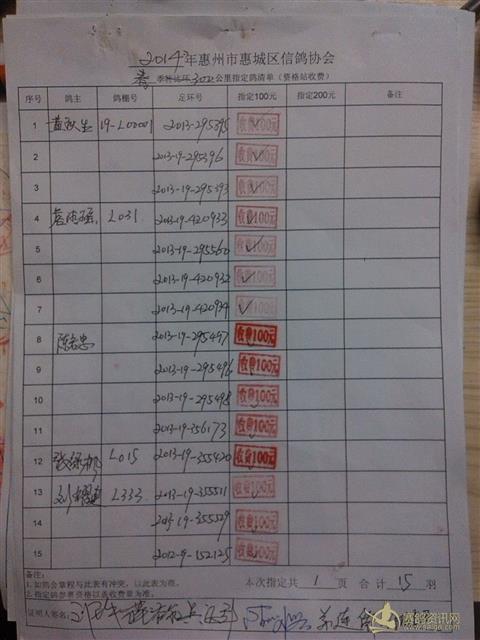 2014年惠州市惠城区信鸽协会
春季特比环300公里指定鸽清单（资格站收费）
序号 鸽主 鸽棚号 足环号 指定100元 指定200元 备注
1 19-L00001 2013-295395 收费100元
2 2013-19-295396 收费100元
3 2013-19-295393 收费100元
4 L031 2013-19-420933 收费100元
5 2013-19-295560 收费100元
6 2013-19-420932 收费100元
7 2013-19-420934 收费100元
8 2013-19-295497 收费100元
9 2013-19-295496 收费100元
10 2013-19-295498 收费100元
11 2013-19-356173 收费100元
12 L015 2013-19-355420 收费100元
13 L333 2013-19-355511 收费100元
14 2013-19-355529 收费100元
15 2012-9-152125 收费100元
备注：
1.如鸽会章程与此表有冲突，以此表为准。
2.指定鸽参赛资格以表收费章为准。
本次指定共 1 页 合计 15 羽
证明人签名：
赛鸽资讯网
www.saige.com